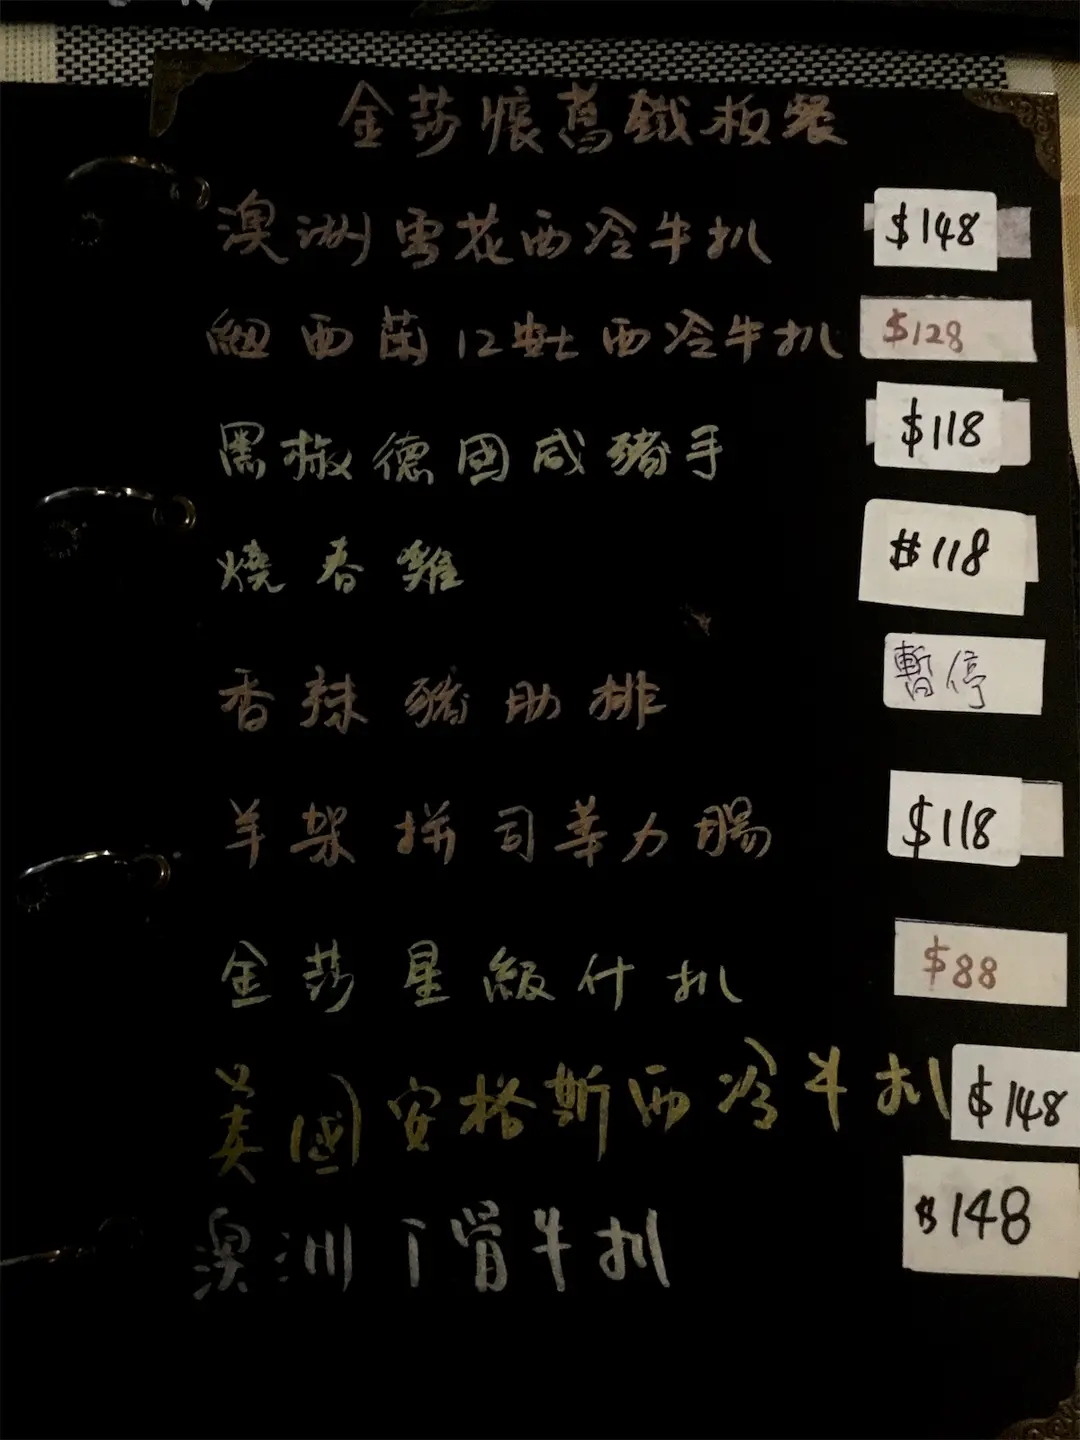 金莎懷舊鐵板餐
澳洲雪花西冷牛扒 $148
紐西蘭12安士西冷牛扒 $128
黑椒德國咸豬手 $118
燒春雞 $118
香辣豬肋排 暫停
羊架拼司華力腸 $118
金莎星級什扒 $88
美國安格斯西冷牛扒 $148
澳洲丁骨牛扒 $148